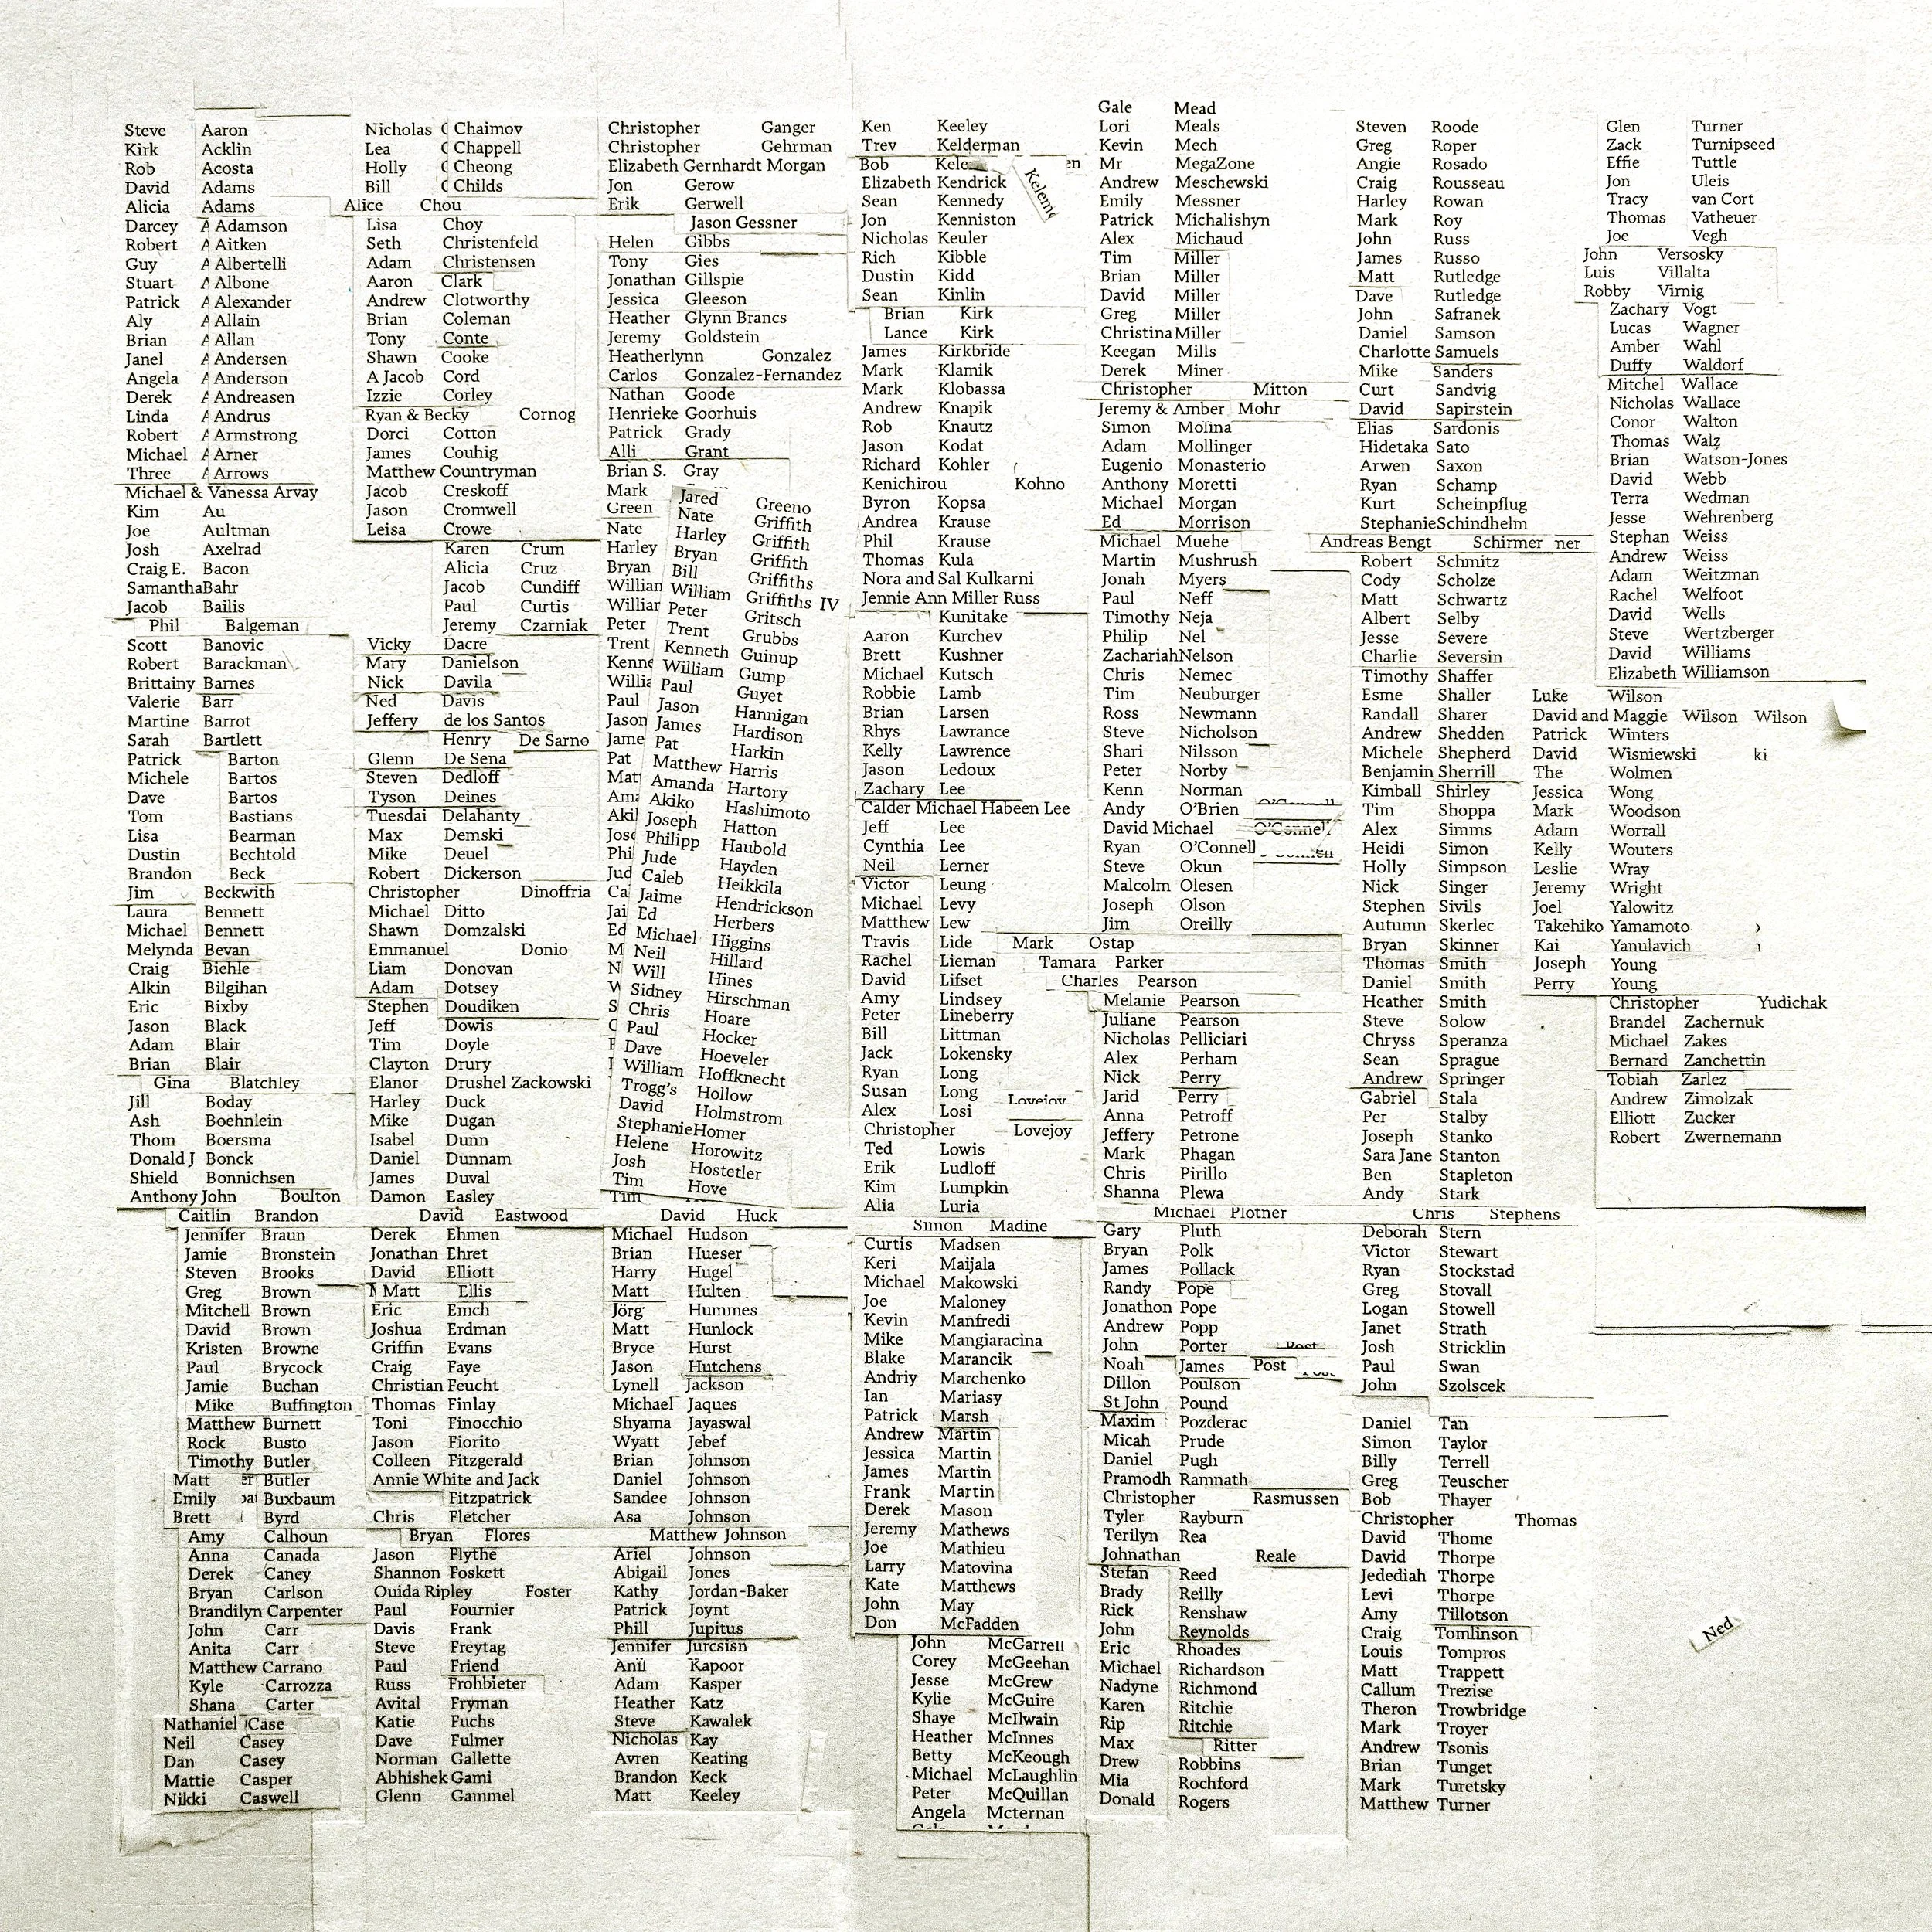 Steve Aaron
Kirk Acklin
Rob Acosta
David Adams
Alicia Adams
Darcey A Adamson
Robert A Aitken
Guy A Albertelli
Stuart A Albone
Patrick A Alexander
Aly A Allain
Brian A Allan
Janel A Andersen
Angela A Anderson
Derek A Andreasen
Linda A Andrus
Robert A Armstrong
Michael A Arner
Three A Arrows
Michael & Vanessa Arvay
Kim Au
Joe Aultman
Josh Axelrad
Craig E. Bacon
Samantha Bahr
Jacob Bailis
Phil Balgeman
Scott Banovic
Robert Barackman
Brittainy Barnes
Valerie Barr
Martine Barrot
Sarah Bartlett
Patrick Barton
Michele Bartos
Dave Bartos
Tom Bastians
Lisa Bearman
Dustin Bechtold
Brandon Beck
Jim Beckwith
Laura Bennett
Michael Bennett
Melynda Bevan
Craig Biehle
Alkin Bilgihan
Eric Bixby
Jason Black
Adam Blair
Brian Blair
Gina Blatchley
Jill Boday
Ash Boehnlein
Thom Boersma
Donald J Bonck
Shield Bonnichsen
Anthony John Boulton
Caitlin Brandon
Jennifer Braun
Jamie Bronstein
Steven Brooks
Greg Brown
Mitchell Brown
David Brown
Kristen Browne
Paul Brycock
Jamie Buchan
Mike Buffington
Matthew Burnett
Rock Busto
Timothy Butler
Matt Butler
Emily Buxbaum
Brett Byrd
Amy Calhoun
Anna Canada
Derek Caney
Bryan Carlson
Brandilyn Carpenter
John Carr
Anita Carr
Matthew Carrano
Kyle Carrozza
Shana Carter
Nathaniel Case
Neil Casey
Dan Casey
Mattie Casper
Nikki Caswell
Nicholas C Chaimov
Lea C Chappell
Holly C Cheong
Bill C Childs
Alice Chou
Lisa Choy
Seth Christenfeld
Adam Christensen
Aaron Clark
Andrew Clotworthy
Brian Coleman
Tony Conte
Shawn Cooke
A Jacob Cord
Izzie Corley
Ryan & Becky Cornog
Dorci Cotton
James Couhig
Matthew Countryman
Jacob Creskoff
Jason Cromwell
Leisa Crowe
Karen Crum
Alicia Cruz
Jacob Cundiff
Paul Curtis
Jeremy Czarniak
Vicky Dacre
Mary Danielson
Nick Davila
Ned Davis
Jeffery de los Santos
Henry De Sarno
Glenn De Sena
Steven Dedloff
Tyson Deines
Tuesdai Delahanty
Max Demski
Mike Deuel
Robert Dickerson
Christopher Dinoffria
Michael Ditto
Shawn Domzalski
Emmanuel Donio
Liam Donovan
Adam Dotsey
Stephen Doudiken
Jeff Dowis
Tim Doyle
Clayton Drury
Elanor Drushel Zackowski
Harley Duck
Mike Dugan
Isabel Dunn
Daniel Dunnam
James Duval
Damon Easley
David Eastwood
Derek Ehmen
Jonathan Ehret
David Elliott
Matt Ellis
Eric Emch
Joshua Erdman
Griffin Evans
Craig Faye
Christian Feucht
Thomas Finlay
Toni Finocchio
Jason Fiorito
Colleen Fitzgerald
Annie White and Jack
Fitzpatrick
Chris Fletcher
Bryan Flores
Jason Flythe
Shannon Foskett
Ouida Ripley Foster
Paul Fournier
Davis Frank
Steve Freytag
Paul Friend
Russ Frohbieter
Avital Fryman
Katie Fuchs
Dave Fulmer
Norman Gallette
Abhishek Gami
Glenn Gammel
Christopher Ganger
Christopher Gehrman
Elizabeth Gernhardt Morgan
Jon Gerow
Erik Gerwell
Jason Gessner
Helen Gibbs
Tony Gies
Jonathan Gillspie
Jessica Gleeson
Heather Glynn Brancs
Jeremy Goldstein
Heatherlynn Gonzalez
Carlos Gonzalez-Fernandez
Nathan Goode
Henrieke Goorhuis
Patrick Grady
Alli Grant
Brian S. Gray
Mark
Green
Nate
Harley
Bryan
Peter
Trent
Paul
Jason
Pat
Jared Greeno
Nate Griffith
Harley Griffith
Bryan Griffith
Bill Griffiths
William Griffiths IV
Peter Gritsch
Trent Grubbs
Kenneth Guinup
William Gump
Paul Guyet
Jason Hannigan
James Hardison
Pat Harkin
Matthew Harris
Amanda Hartory
Akiko Hashimoto
Joseph Hatton
Philipp Haubold
Jude Hayden
Caleb Heikkila
Jaime Hendrickson
Ed Herbers
Michael Higgins
Neil Hillard
Will Hines
Sidney Hirschman
Chris Hoare
Paul Hocker
Dave Hoeveler
William Hoffknecht
Trogg's Hollow
David Holmstrom
Stephanie Homer
Helene Horowitz
Josh Hostetler
Tim Hove
Tim
David Huck
Michael Hudson
Brian Hueser
Harry Hugel
Matt Hulten
Jörg Hummes
Matt Hunlock
Bryce Hurst
Jason Hutchens
Lynell Jackson
Michael Jaques
Shyama Jayaswal
Wyatt Jebef
Brian Johnson
Daniel Johnson
Sandee Johnson
Asa Johnson
Matthew Johnson
Ariel Johnson
Abigail Jones
Kathy Jordan-Baker
Patrick Joynt
Phill Jupitus
Jennifer Jurcsisn
Anil Kapoor
Adam Kasper
Heather Katz
Steve Kawalek
Nicholas Kay
Avren Keating
Brandon Keck
Matt Keeley
Ken Keeley
Trev Kelderman
Bob Kele en
Keleme
Elizabeth Kendrick
Sean Kennedy
Jon Kenniston
Nicholas Keuler
Rich Kibble
Dustin Kidd
Sean Kinlin
Brian Kirk
Lance Kirk
James Kirkbride
Mark Klamik
Mark Klobassa
Andrew Knapik
Rob Knautz
Jason Kodat
Richard Kohler
Kenichirou Kohno
Byron Kopsa
Andrea Krause
Phil Krause
Thomas Kula
Nora and Sal Kulkarni
Jennie Ann Miller Russ
Kunitake
Aaron Kurchev
Brett Kushner
Michael Kutsch
Robbie Lamb
Brian Larsen
Rhys Lawrance
Kelly Lawrence
Jason Ledoux
Zachary Lee
Calder Michael Habeen Lee
Jeff Lee
Cynthia Lee
Neil Lerner
Victor Leung
Michael Levy
Matthew Lew
Travis Lide
Rachel Lieman
David Lifset
Amy Lindsey
Peter Lineberry
Bill Littman
Jack Lokensky
Ryan Long
Susan Long
Lovejoy
Alex Losi
Christopher Lovejoy
Ted Lowis
Erik Ludloff
Kim Lumpkin
Alia Luria
Simon Madine
Curtis Madsen
Keri Maijala
Michael Makowski
Joe Maloney
Kevin Manfredi
Mike Mangiaracina
Blake Marancik
Andriy Marchenko
Ian Mariasy
Patrick Marsh
Andrew Martin
Jessica Martin
James Martin
Frank Martin
Derek Mason
Jeremy Mathews
Joe Mathieu
Larry Matovina
Kate Matthews
John May
Don McFadden
John McGarrell
Corey McGeehan
Jesse McGrew
Kylie McGuire
Shaye McIlwain
Heather McInnes
Betty McKeough
Michael McLaughlin
Peter McQuillan
Angela Mcternan
Gale Mead
Lori Meals
Kevin Mech
Mr MegaZone
Andrew Meschewski
Emily Messner
Patrick Michalishyn
Alex Michaud
Tim Miller
Brian Miller
David Miller
Greg Miller
Christina Miller
Keegan Mills
Derek Miner
Christopher Mitton
Jeremy & Amber Mohr
Simon Molina
Adam Mollinger
Eugenio Monasterio
Anthony Moretti
Michael Morgan
Ed Morrison
Michael Muehe
Martin Mushrush
Jonah Myers
Paul Neff
Timothy Neja
Philip Nel
Zachariah Nelson
Chris Nemec
Tim Neuburger
Ross Newmann
Steve Nicholson
Shari Nilsson
Peter Norby
Kenn Norman
Andy O'Brien
David Michael O'Connell
Ryan O'Connell
Steve Okun
Malcolm Olesen
Joseph Olson
Jim Oreilly
Mark Ostap
Tamara Parker
Charles Pearson
Melanie Pearson
Juliane Pearson
Nicholas Pelliciari
Alex Perham
Nick Perry
Jarid Perry
Anna Petroff
Jeffery Petrone
Mark Phagan
Chris Pirillo
Shanna Plewa
Michael Plotner
Gary Pluth
Bryan Polk
James Pollack
Randy Pope
Jonathon Pope
Andrew Popp
John Porter Post
Noah James Post
Dillon Poulson
St John Pound
Maxim Pozderac
Micah Prude
Daniel Pugh
Pramodh Ramnath
Christopher Rasmussen
Tyler Rayburn
Terilyn Rea
Johnathan Reale
Stefan Reed
Brady Reilly
Rick Renshaw
John Reynolds
Eric Rhoades
Michael Richardson
Nadyne Richmond
Karen Ritchie
Rip Ritchie
Max Ritter
Drew Robbins
Mia Rochford
Donald Rogers
Steven Roode
Greg Roper
Angie Rosado
Craig Rousseau
Harley Rowan
Mark Roy
John Russ
James Russo
Matt Rutledge
Dave Rutledge
John Safranek
Daniel Samson
Charlotte Samuels
Mike Sanders
Curt Sandvig
David Sapirstein
Elias Sardonis
Hidetaka Sato
Arwen Saxon
Ryan Schamp
Kurt Scheinpflug
Stephanie Schindhelm
Andreas Bengt Schirmer ner
Robert Schmitz
Cody Scholze
Matt Schwartz
Albert Selby
Jesse Severe
Charlie Seversin
Timothy Shaffer
Esme Shaller
Randall Sharer
Andrew Shedden
Michele Shepherd
Benjamin Sherrill
Kimball Shirley
Tim Shoppa
Alex Simms
Heidi Simon
Holly Simpson
Nick Singer
Stephen Sivils
Autumn Skerlec
Bryan Skinner
Thomas Smith
Daniel Smith
Heather Smith
Steve Solow
Chryss Speranza
Sean Sprague
Andrew Springer
Gabriel Stala
Per Stalby
Joseph Stanko
Sara Jane Stanton
Ben Stapleton
Andy Stark
Chris Stephens
Deborah Stern
Victor Stewart
Ryan Stockstad
Greg Stovall
Logan Stowell
Janet Strath
Josh Stricklin
Paul Swan
John Szolscek
Daniel Tan
Simon Taylor
Billy Terrell
Greg Teuscher
Bob Thayer
Christopher Thomas
David Thome
David Thorpe
Jedediah Thorpe
Levi Thorpe
Amy Tillotson
Craig Tomlinson
Louis Tompros
Matt Trappett
Callum Trezise
Theron Trowbridge
Mark Troyer
Andrew Tsonis
Brian Tunget
Mark Turetsky
Matthew Turner
Glen Turner
Zack Turnipseed
Effie Tuttle
Jon Uleis
Tracy van Cort
Thomas Vatheuer
Joe Vegh
John Versosky
Luis Villalta
Robby Virnig
Zachary Vogt
Lucas Wagner
Amber Wahl
Duffy Waldorf
Mitchel Wallace
Nicholas Wallace
Conor Walton
Thomas Walz
Brian Watson-Jones
David Webb
Terra Wedman
Jesse Wehrenberg
Stephan Weiss
Andrew Weiss
Adam Weitzman
Rachel Welfoot
David Wells
Steve Wertzberger
David Williams
Elizabeth Williamson
Luke Wilson
David and Maggie Wilson Wilson
Patrick Winters
David Wisniewski ki
The Wolmen
Jessica Wong
Mark Woodson
Adam Worrall
Kelly Wouters
Leslie Wray
Jeremy Wright
Joel Yalowitz
Takehiko Yamamoto
Kai Yanulavich
Joseph Young
Perry Young
Christopher Yudichak
Brandel Zachernuk
Michael Zakes
Bernard Zanchettin
Tobiah Zarlez
Andrew Zimolzak
Elliott Zucker
Robert Zwernemann
Ned